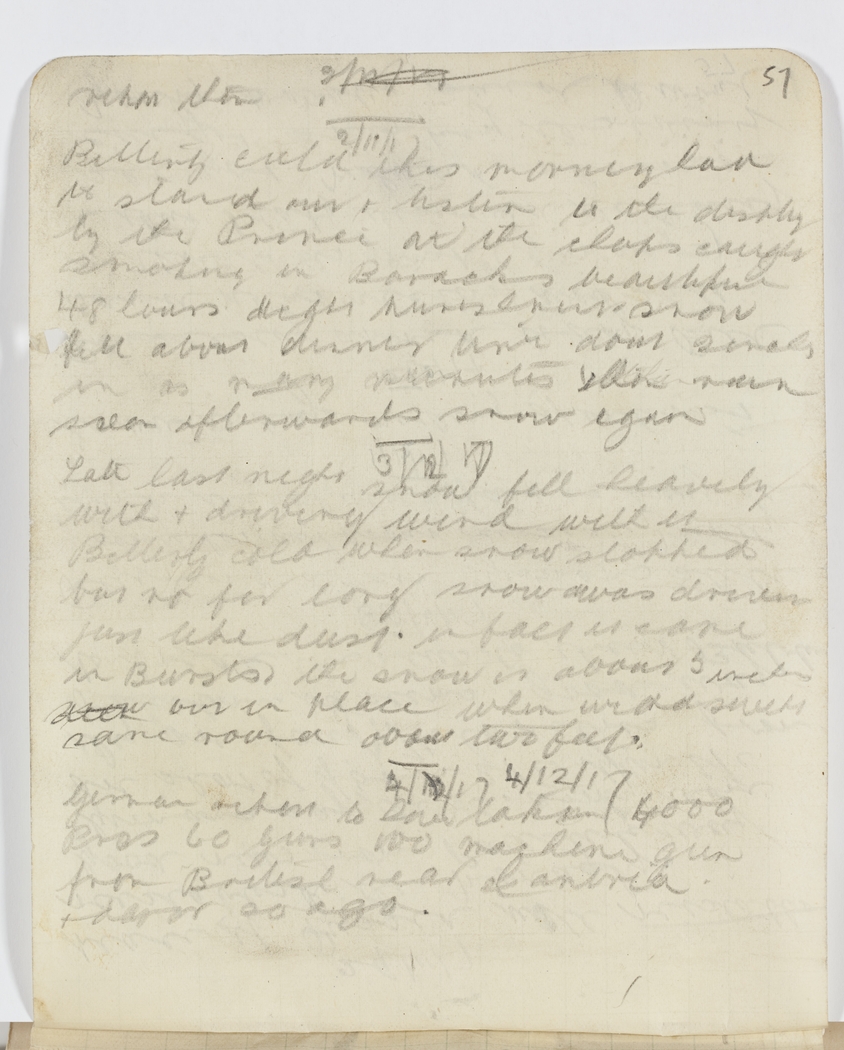 57
2/11/17
Bitterly cold this morning had
to stand out & listen to the
by the Prince at the chaps caught
smoking in Barracks beautiful
48 hours snow
fell about dinner time dont
in as many minutes rain
soon afterwards snow again
3/12/17
Late last night snow fell heavily
with & driving wind with it
Bitterly cold when snow stopped
but no for long snow was driven
just like dust. in fact it came
in Bursts, the snow is about 5 inches
but in place when wind
same round about two feet.
4/12/17 4/12/17
German report to have taken 4000
Pros 60 guns 100 machine gun
from British near Cambria